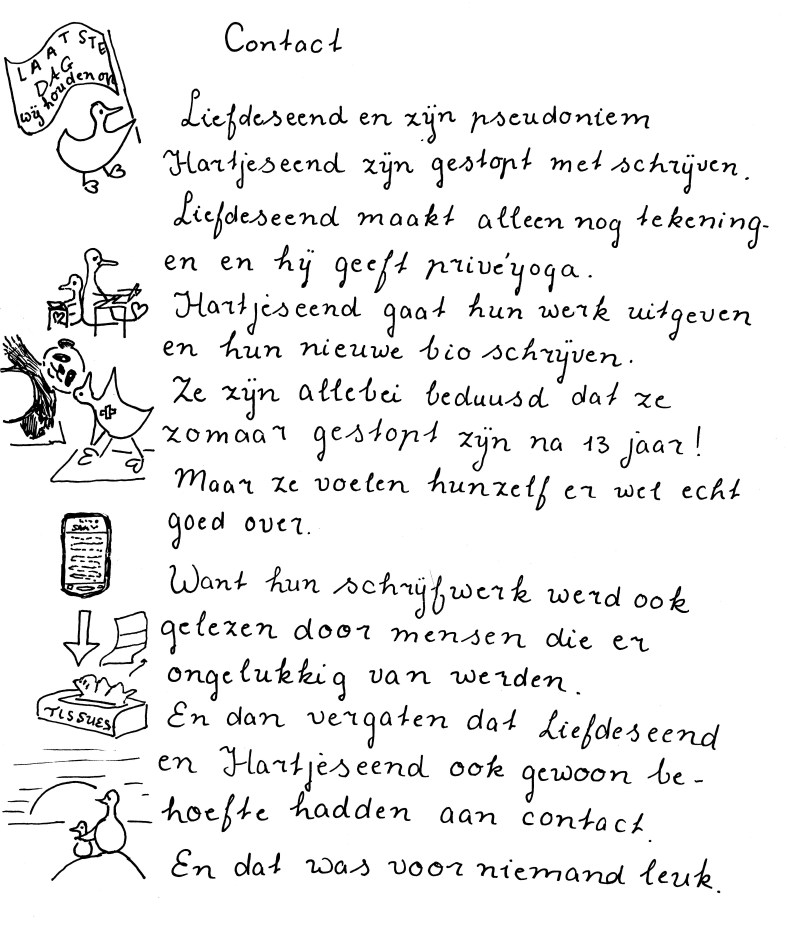 LAATSTE
DAG
wij houden op
Contact
Liefdeseend en zijn pseudoniem
Hartjeseend zijn gestopt met schrijven.
Liefdeseend maakt alleen nog tekening-
en en hij geeft privé yoga.
Hartjeseend gaat hun werk uitgeven
en hun nieuwe bio schrijven.
Ze zijn allebei beduusd dat ze
zomaar gestopt zijn na 13 jaar!
Maar ze voelen hunzelf er wel echt
goed over.
Want hun schrijfwerk werd ook
gelezen door mensen die er
ongelukkig van werden.
TISSUES
En dan vergaten dat Liefdeseend
en Hartjeseend ook gewoon be-
hoefte hadden aan contact.
En dat was voor niemand leuk.